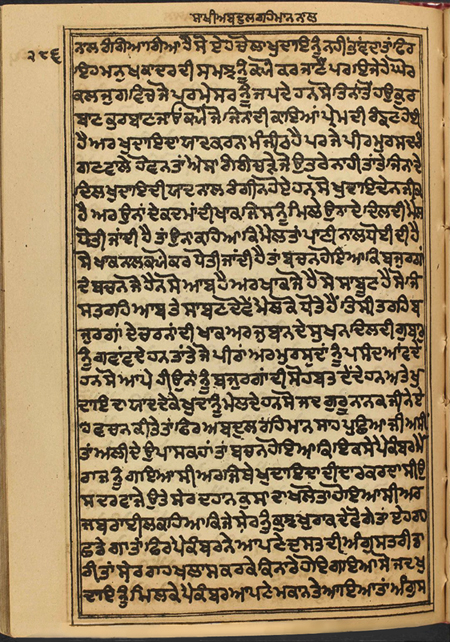 ਸਾਖੀ ਅਬਦੁਲ ਰਹਿਮਾਨ ਨਾਲ
੨੮੬
ਨਾਲ ਰੰਗੀ ਹੈ ਸੋ ਏਹ ਚੋਲਾ ਖੁਦਾਇ ਨੂੰ ਨਹੀ ਫਿਰ
ਇਹ ਮਨੁਖ ਕਾਦਰ ਦੀ ਸਮਝ ਨੂੰ ਕਰ ਜਾਣੈ ਪਰ
ਕਲਜੁਗ ਵਿਚ ਜੋ ਪਰਮੇਸਰ ਨੂੰ ਜਪਦੇ ਹਨ ਸੋ ਤਿਨਾਂ ਤੋਂ ਹਉ ਕੁਰ
ਬਾਣ ਕੁਰਬਾਣ ਜਾਂ ਜਿਨ ਦੀ ਕਾਇਆਂ ਪ੍ਰੇਮ ਦੀ ਹੋਈ
ਹੈ ਅਰ ਖੁਦਾਇ ਦਾ ਯਾਦ ਕਰਨ ਮੰਜੀਠ ਹੈ ਪਰ ਜੇ ਪੀਰ ਮੁਰਸਦ
ਹੋਵਨ ਤਾਂ ਐਸਾ ਰੰਗ ਚੜੇ ਜੋ ਉਤਰੇ ਨਾਹੀ ਤਾਂ ਤੇ ਜਿਨਾ ਦੇ
ਦਿਲ ਖੁਦਾਇ ਦੀ ਯਾਦ ਨਾਲ ਰੰਗੀਨ ਹੋਏ ਹਨ ਸੋ ਖੁਦਾਇ ਦੇ ਨਜੀਕ
ਹੈ ਅਰ ਉਨਾਂ ਦੇ ਕਦਮਾਂ ਦੀ ਖਾਕ ਜਿਸ ਨੂੰ ਮਿਲੇ ਉਨਾ ਦੇ ਦਿਲ ਦੀ ਮੈਲ
ਧੋਤੀ ਜਾਂਦੀ ਹੈ ਤਾਂ ਉਨ ਕਹਿਆ ਕਿ ਮੈਲ ਤਾਂ ਪਾਣੀ ਨਾਲ ਧੋਈਦੀ ਹੈ
ਸੋ ਖਾਕ ਨਾਲ ਕਿਉ ਕਰ ਧੋਤੀ ਜਾਂਦੀ ਹੈ ਤਾਂ ਬਚਨ ਹੋਇਆ ਕਿ ਬੁਜਰਗਾਂ
ਦੇ ਬਚਨ ਜੋ ਹੈਨ ਸੋ ਆਬ ਹੈ ਅਰ ਖਾਕ ਜੋ ਹੈ ਸੋ ਸਾਬੁਣ ਹੈ ਸੋ ਜੀ
ਸ ਤਰਹਿ ਆਬ ਤੇ ਸਾਬਣ ਦੋਨੋਂ ਮੈਲ ਕੋ ਧੋਤੇ ਹੈਂ ਤਿਸੀ ਤਰਹਿ ਬੁ
ਜੁਰਗਾਂ ਦੇ ਚਰਨਾਂ ਦੀ ਖਾਕ ਅਰ ਜੁਬਾਨ ਦੇ ਸੁਖਨ ਦਿਲ ਦੀ ਗੁਬਾਰ
ਨੂੰ ਗਵਾਂਵਦੇ ਹਨ ਤਾਂ ਤੇ ਜੋ ਪੀਰਾਂ ਅਰ ਮੁਰਸਦਾਂ ਨੂੰ ਪਸੰਦ ਆਂਵਦੇ
ਹਨ ਸੋ ਆਪੇ ਹੀ ਉਨਾਂ ਨੂੰ ਬਜੁਰਗਾਂ ਦੀ ਸੋਹਬਤ ਦੇਂਦੇ ਹਨ ਅਤੇ ਖੁ
ਦਾਇ ਦਾ ਯਾਦ ਦੇਕੇ ਖੁਦਾ ਨੂੰ ਮੇਲਦੇ ਹਨ ਸੋ ਜਦ ਗੁਰੂ ਨਾਨਕ ਜੀ ਨੇ ਏ
ਹ ਬਚਨ ਕੀਤੇ ਤਾਂ ਫਿਰ ਅਬਦੁਲ ਰਹਿਮਾਨ ਸਾਹ ਪੁਛਿਆ ਜੀ ਅਸੀਂ
ਤਾਂ ਅਲੀ ਦੇ ਉਪਾਸਕ ਹਾਂ ਤਾਂ ਬਚਨ ਹੋਇਆ ਕਿ ਇਕ ਸਮੇ ਪੈਕੰਬਰ ਮੇ
ਰਾਜ ਨੂੰ ਗਇਆ ਸੀ ਅਗੇ ਜਾਇ ਖੁਦਾਇ ਦਾ ਦੀਦਾਰ ਕਰਦਾ ਸੀ ਉ
ਸ ਦਰਵਾਜੇ ਉਤੇ ਸੇਰ ਦਹਨ ਕੁਸਾਦਾ ਖਲੋਤਾ ਹੋਇਆ ਸੀ ਅਰ
ਜਬਰਾਈਲ ਕਹਿਆ ਕਿ ਜੇ ਸੇਰ ਨੂੰ ਕੁਛ ਖੁਰਾਕ ਦੇਵੋਗੇ ਤਾਂ ਏਹ ਰਾਹ
ਛਡੇਗਾ ਤਾਂ ਫਿਰ ਪੈਕੰਬਰ ਨੇ ਆਪਣੇ ਦਸਤ ਦੀ ਅੰਗੁਸਤਰੀ ਤਾ
ਰੀ ਤਾਂ ਸੇਰ ਰਾਹ ਖੁਲਾਸਾ ਕਰਕੇ ਕਿਨਾਰੇ ਹੋਇ ਗਇਆ ਸੋ ਜਦ ਖੁ
ਦਾਇ ਨੂੰ ਮਿਲਕੇ ਪੈਕੰਬਰ ਆਪਣੇ ਮਕਾਨ ਤੇ ਆਇਆ ਤਾਂ ਅੰਗੁਸ